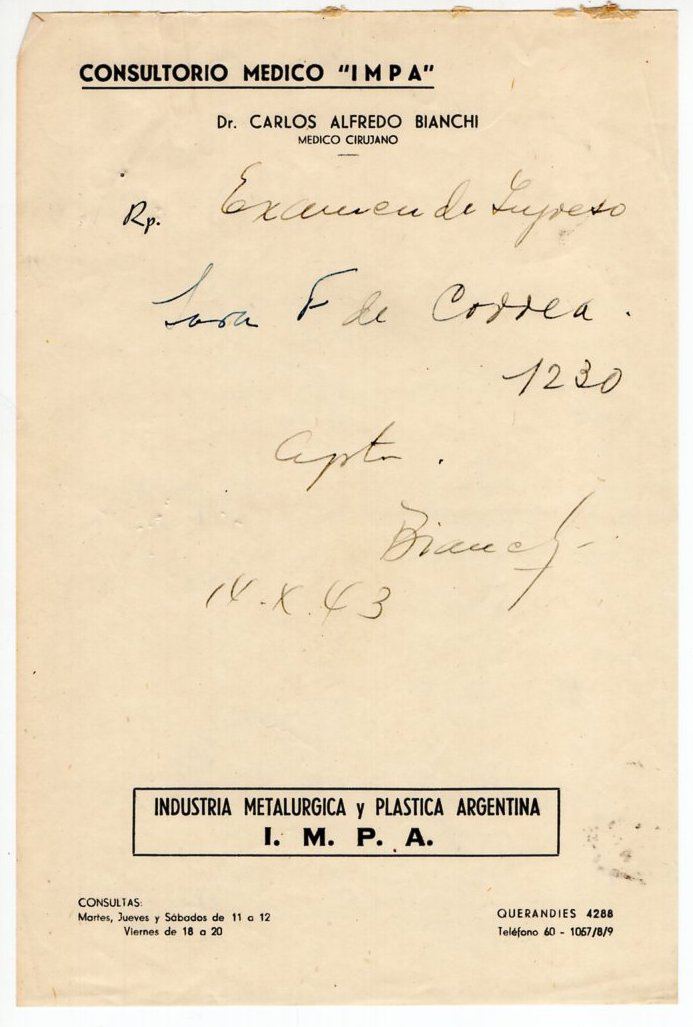 CONSULTORIO MEDICO "IMPA"
Dr. CARLOS ALFREDO BIANCHI
MEDICO CIRUJANO
Rp. Examen de Ingreso
Sara F de Correa.
1230
Apta.
Bianchi
14.X.43
INDUSTRIA METALURGICA y PLASTICA ARGENTINA
I. M. P. A.
CONSULTAS:
Martes, Jueves y Sábados de 11 a 12
Viernes de 18 a 20
QUERANDIES 4288
Teléfono 60 - 1057/8/9